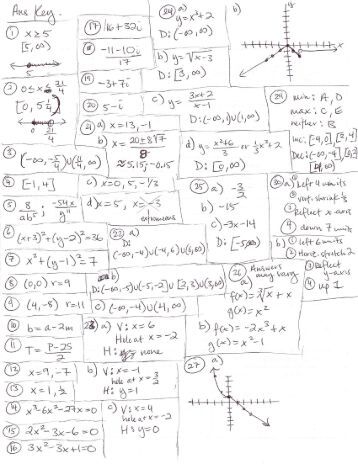 Ans Key.
① x ≥ 5
[5, ∞)
5
② 0 ≤ x ≤ 21/4
[0, 5 1/4]
0 21/4
③ (-∞, -5/4) ∪ (4/4, ∞)
④ [-1, 4]
⑤ 8/ab⁵,
⑥ (x+3)² + (y-2)² = 36
⑦ x² + (y-1)² = 7
⑧ (0,0) r = 9
⑨ (4,-8) r = 11
⑩ b = a - 2m
⑪ T = P-25/2
⑫ x = 9, -7
⑬ x = 1, 1/2
⑭ x³ - 6x² - 27x = 0
⑮ 2x² - 3x - 6 = 0
⑯ 3x² - 3x + 1 = 0
⑰ 16 + 32i
⑱ -11-10i/17
⑲ -3 + 7i
⑳ 5 - i
㉑ a) x = 13, -1
b) x = 20 ± 8√7/8
≈ 5.15, -0.15
c) x = 0, 5, -1/3
d) x = 5, x = -3
extraneous
a)
D:
(-∞, -4) ∪ (-4, 6) ∪ (6, ∞)
b)
D: (-∞, -5) ∪ (-5, -2] ∪ [2, 3) ∪ (3, ∞)
c) (-∞, -4) ∪ (4, ∞)
a) V: x = 6
Hole at x = -2
H: none
b) V: x = -1
hole at x = 3/2
H: y = 1
c) V: x = 4
hole at x = -2
H: y = 0
a)
y = x² + 2
D: (-∞, ∞)
b) y = √x-3
D: [3, ∞)
c) y = 3x+2/x-1
D: (-∞, 1) ∪ (1, ∞)
d) y = x²+6/3 or 1/3x² + 2
D: [0, ∞)
㉕ a) -3/2
b) -15
c) -3x - 14
D: [-5, ∞)
㉖ Answers
may vary.
a)
f(x) = ∛x + x
g(x) = x²
b) f(x) = -2x³ + x
g(x) = x² - 1
㉗ a)
b)
x
y
min: A, D
max: C, E
neither: B
a) left 4 units
② vert. shrink 1/3
③ Reflect x-axis
④ down 7 units
b) ① left 6 units
② Horiz. stretch 2
③ Reflect
y-axis
④ up 1